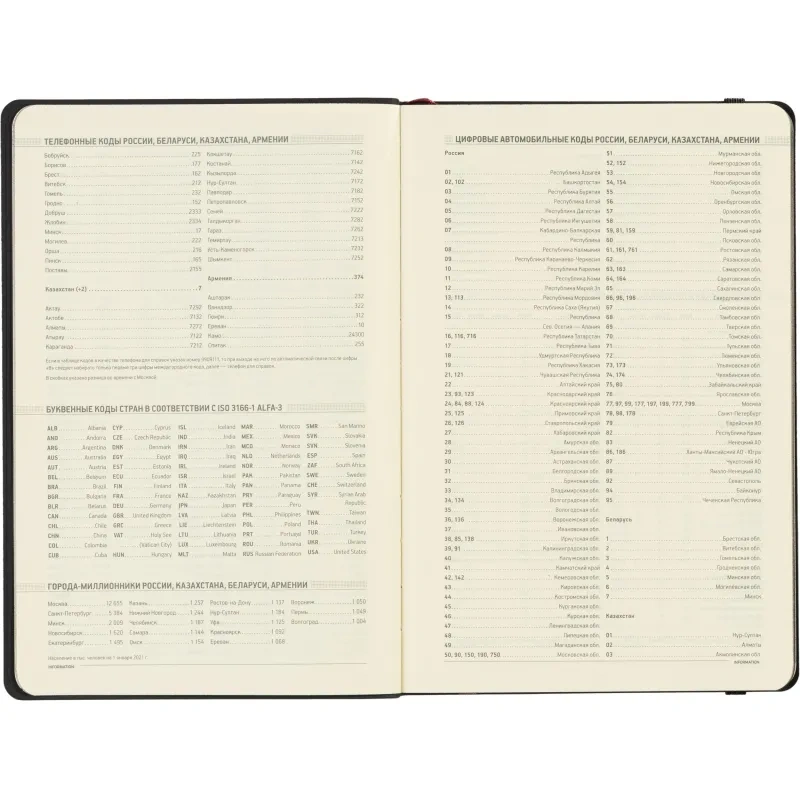 ТЕЛЕФОННЫЕ КОДЫ РОССИИ, БЕЛАРУСИ, КАЗАХСТАНА, АРМЕНИИ
Бобруйск 225
Борисов 177
Брест 162
Витебск 212
Гомель 232
Гродно 152
Добруш 2333
Жлобин 2334
Минск 17
Могилев 222
Орша 216
Пинск 165
Поставы 2155
Казахстан (+2) 7
Актау 7292
Актобе 7132
Алматы 7272
Атырау 7122
Караганда 7212
Кокшетау 7162
Костанай 7142
Кызылорда 7242
Нур-Султан 7172
Павлодар 7182
Петропавловск 7152
Семей 7222
Талдыкорган 7282
Тараз 7262
Темиртау 7213
Усть-Каменогорск 7232
Шымкент 7252
Армения 374
Аштарак 232
Ванадзор 322
Гюмри 312
Ереван 10
Спитак 255
БУКВЕННЫЕ КОДЫ СТРАН В СООТВЕТСТВИИ С ISO 3166-1 ALFA-3
ALB Albania CYP Cyprus ISL Iceland MAR Morocco SMR San Marino
AND Andorra CZE Czech Republic IND India MEX Mexico SVK Slovakia
ARG Argentina DNK Denmark IRN Iran MCO Monaco SVN Slovenia
AUS Australia EGY Egypt IRQ Iraq NLD Netherlands ESP Spain
AUT Austria EST Estonia IRL Ireland NOR Norway ZAF South Africa
BEL Belgium ECU Ecuador ISR Israel PAK Pakistan SWE Sweden
BRA Brazil FIN Finland ITA Italy PAN Panama CHE Switzerland
BGR Bulgaria FRA France KAZ Kazakhstan PRY Paraguay SYR Syrian Arab
BLR Belarus DEU Germany JPN Japan PER Peru Republic
CAN Canada GBR United Kingdom LVA Latvia PHL Philippines TWN Taiwan
CHL Chile GRC Greece LIE Liechtenstein POL Poland THA Thailand
CHN China VAT Holy See LTU Lithuania PRT Portugal TUR Turkey
COL Columbia (Vatican City) LUX Luxembourg ROU Romania UKR Ukraine
CUB Cuba HUN Hungary MLT Malta RUS Russian Federation USA United States
ГОРОДА-МИЛЛИОННИКИ РОССИИ, КАЗАХСТАНА, БЕЛАРУСИ, АРМЕНИИ
Москва 12 655 Казань 1 257 Ростов-на-Дону 1 137 Воронеж 1 050
Санкт-Петербург 5 384 Нижний Новгород 1 244 Нур-Султан 1 184 Пермь 1 049
Минск 2 009 Челябинск 1 187 Уфа 1 125 Волгоград 1 004
Новосибирск 1 620 Самара 1 144 Красноярск 1 092
Екатеринбург 1 495 Омск 1 154 Ереван
Население в тыс. человек на 1 января 2021 г.
INFORMATION
ЦИФРОВЫЕ АВТОМОБИЛЬНЫЕ КОДЫ РОССИИ, БЕЛАРУСИ, КАЗАХСТАНА, АРМЕНИИ
Россия
01 Республика Адыгея
02, 102 Башкортостан
03 Республика Бурятия
04 Республика Алтай
05 Республика Дагестан
06 Республика Ингушетия
07 Кабардино-Балкарская
Республика
08 Республика Калмыкия
09 Республика Карачаево-Черкесия
10 Республика Карелия
11 Республика Коми
12 Республика Марий Эл
13, 113 Республика Мордовия
14 Республика Саха (Якутия)
15 Республика
Сев. Осетия — Алания
16, 116, 716 Республика Татарстан
17 Республика Тыва
18 Удмуртская Республика
19 Республика Хакасия
21, 121 Чувашская Республика
22 Алтайский край
23, 93, 123 Краснодарский край
24, 84, 88, 124 Красноярский край
25, 125 Приморский край
26, 126 Ставропольский край
27 Хабаровский край
28 Амурская обл.
29 Архангельская обл.
30 Астраханская обл.
31 Белгородская обл.
32 Брянская обл.
33 Владимирская обл.
34, 134 Волгоградская обл.
35 Вологодская обл.
36, 136 Воронежская обл.
37 Ивановская обл.
38, 85, 138 Иркутская обл.
39, 91 Калининградская обл.
40 Калужская обл.
41 Камчатский край
42, 142 Кемеровская обл.
43 Кировская обл.
44 Костромская обл.
45 Курганская обл.
46 Курская обл.
47 Ленинградская обл.
48 Липецкая обл.
49 Магаданская обл.
50, 90, 150, 190, 750 Московская обл.
51 Мурманская обл.
52, 152 Нижегородская обл.
53 Новгородская обл.
54, 154 Новосибирская обл.
55 Омская обл.
56 Оренбургская обл.
57 Орловская обл.
58 Пензенская обл.
59, 81, 159 Пермский край
60 Псковская обл.
61, 161, 761 Ростовская обл.
62 Рязанская обл.
63, 163 Самарская обл.
64, 164 Саратовская обл.
65 Сахалинская обл.
66, 96, 196 Свердловская обл.
67 Смоленская обл.
68 Тамбовская обл.
69 Тверская обл.
70 Томская обл.
71 Тульская обл.
72 Тюменская обл.
73, 173 Ульяновская обл.
74, 174 Челябинская обл.
75, 80 Забайкальский край
76 Ярославская обл.
77, 97, 99, 177, 197, 199, 777, 799 Москва
78, 98, 178 Санкт-Петербург
79 Еврейская АО
82 Республика Крым
83 Ненецкий АО
86, 186 Ханты-Мансийский АО - Югра
87 Чукотский АО
89 Ямало-Ненецкий АО
92 Севастополь
94 Байконур
95 Чеченская Республика
Беларусь
1 Брестская обл.
2 Витебская обл.
3 Гомельская обл.
4 Гродненская обл.
5 Минская обл.
6 Могилёвская обл.
7 Минск
Казахстан
01 Нур-Султан
02 Алматы
03 Акмолинская обл.
INFORMATION